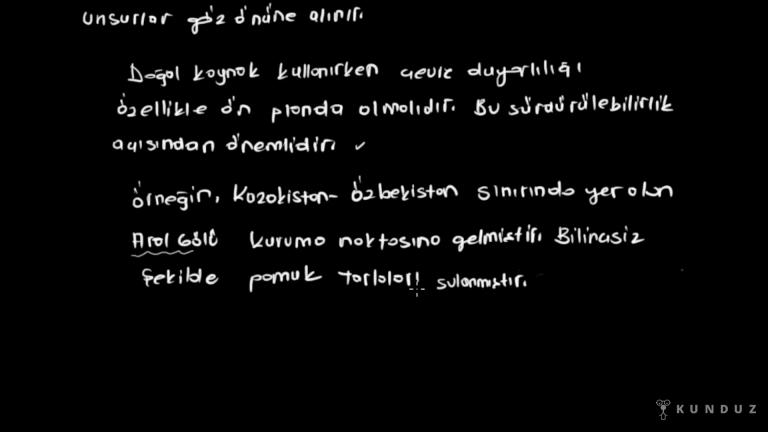 unsurlar göz önüne alınır.
Doğal kaynak kullanırken çevre duyarlılığı
özellikle ön planda olmalıdır. Bu sürdürülebilirlik
açısından önemlidir. ✓
Örneğin, Kazakistan- Özbekistan sınırında yer alan
Aral Gölü kuruma noktasına gelmiştir. Bilinçsiz
şekilde pamuk tarlaları sulanmıştır.
KUNDUZ